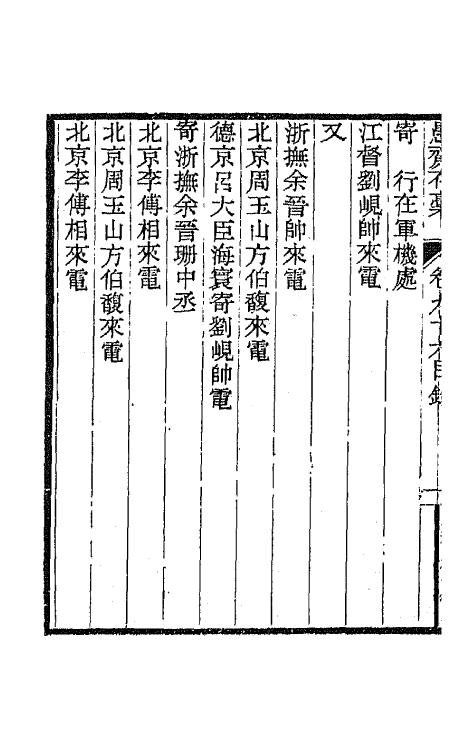 愚齋存藁 卷九十六目錄
寄　行在軍機處
江督劉峴帥來電
又
浙撫余晉帥來電
北京周玉山方伯馥來電
德京呂大臣海寰寄劉峴帥電
寄浙撫余晉珊中丞
北京李傅相來電
北京周玉山方伯馥來電
北京李傅相來電